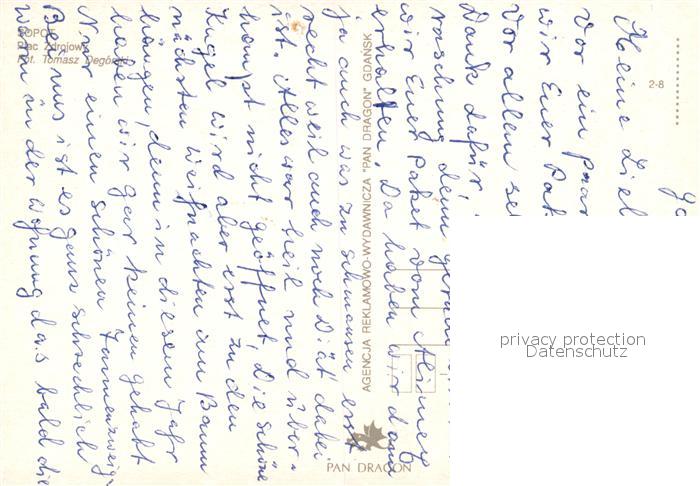 SOPOT
Plac Zdrojowy
Fot. Tomasz Degórski
2-8
Meine Lieb
vor ein paar
wir Euer Pak
vor allem se
Dank dafür,
raschung, denn gerade
wir Euer Paket vom
erhalten. Da haben wir dann
ja auch was zu schmausen erst
recht weil auch noch Diät dabei
ist. Alles war heil und über-
haupt nicht geöffnet. Die schöne
Kugel wird aber erst zu den
nächsten Weihnachten am Baum
hängen, denn in diesem Jahr
hatten wir gar keinen gehabt
Nur einen schönen Tannenzweig.
Bei uns ist es ganz schrecklich
warm in der Wohnung das bald die
AGENCJA REKLAMOWO-WYDAWNICZA "PAN DRAGON" GDAŃSK
PAN DRAGON
privacy protection
Datenschutz